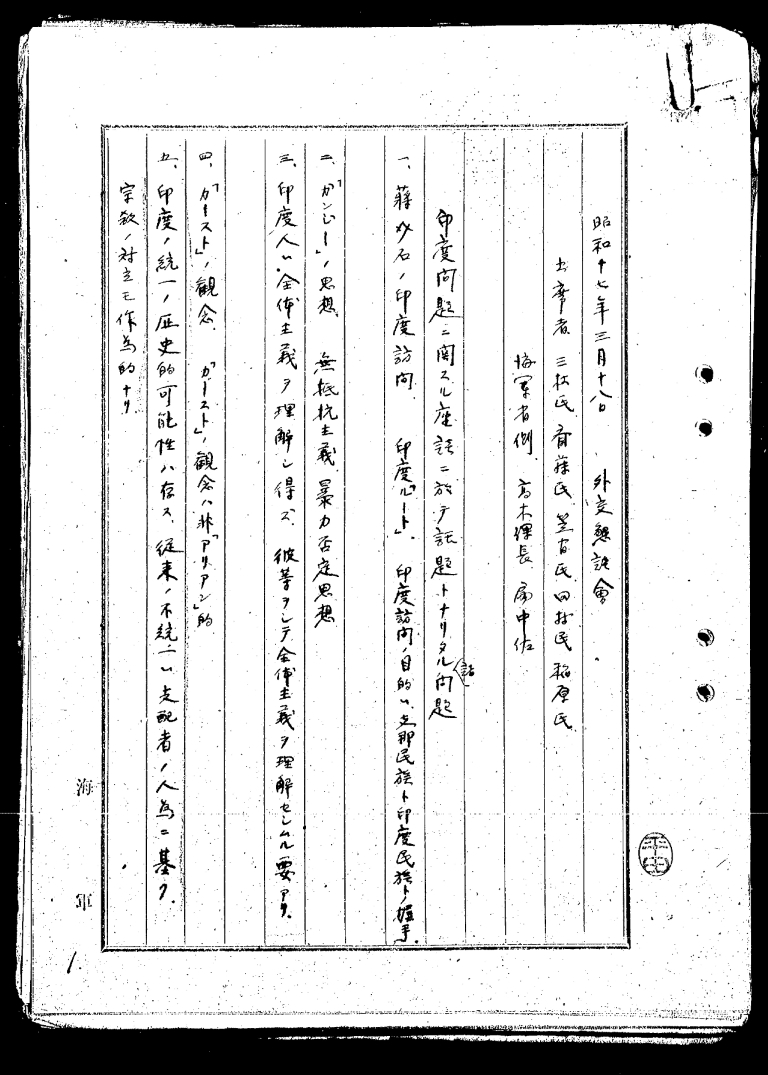 昭和十七年三月十八日　外交懇談會
出席者　三枝氏　斉藤氏　笠間氏　田村氏　稲原氏
海軍省側　高木課長　扇中佐
印度問題ニ関スル座談ニ於テ話題トナリタル諸問題
一、蒋介石ノ印度訪問　印度「ルート」、印度訪問ノ目的ハ支那民族ト印度民族トノ握手、
二、「ガンジー」ノ思想　無抵抗主義、暴力否定思想
三、印度人ハ全体主義ヲ理解シ得ズ　彼等ヲシテ全体主義ヲ理解セシムル要アリ、
四、「カースト」ノ観念、「カースト」ノ観念ハ非「アリアン」的
五、印度ノ統一ノ歴史的可能性ハ存ス、従来ノ不統一ハ支配者ノ人為ニ基ク、
宗教ノ対立モ作為的ナリ
海軍
1.